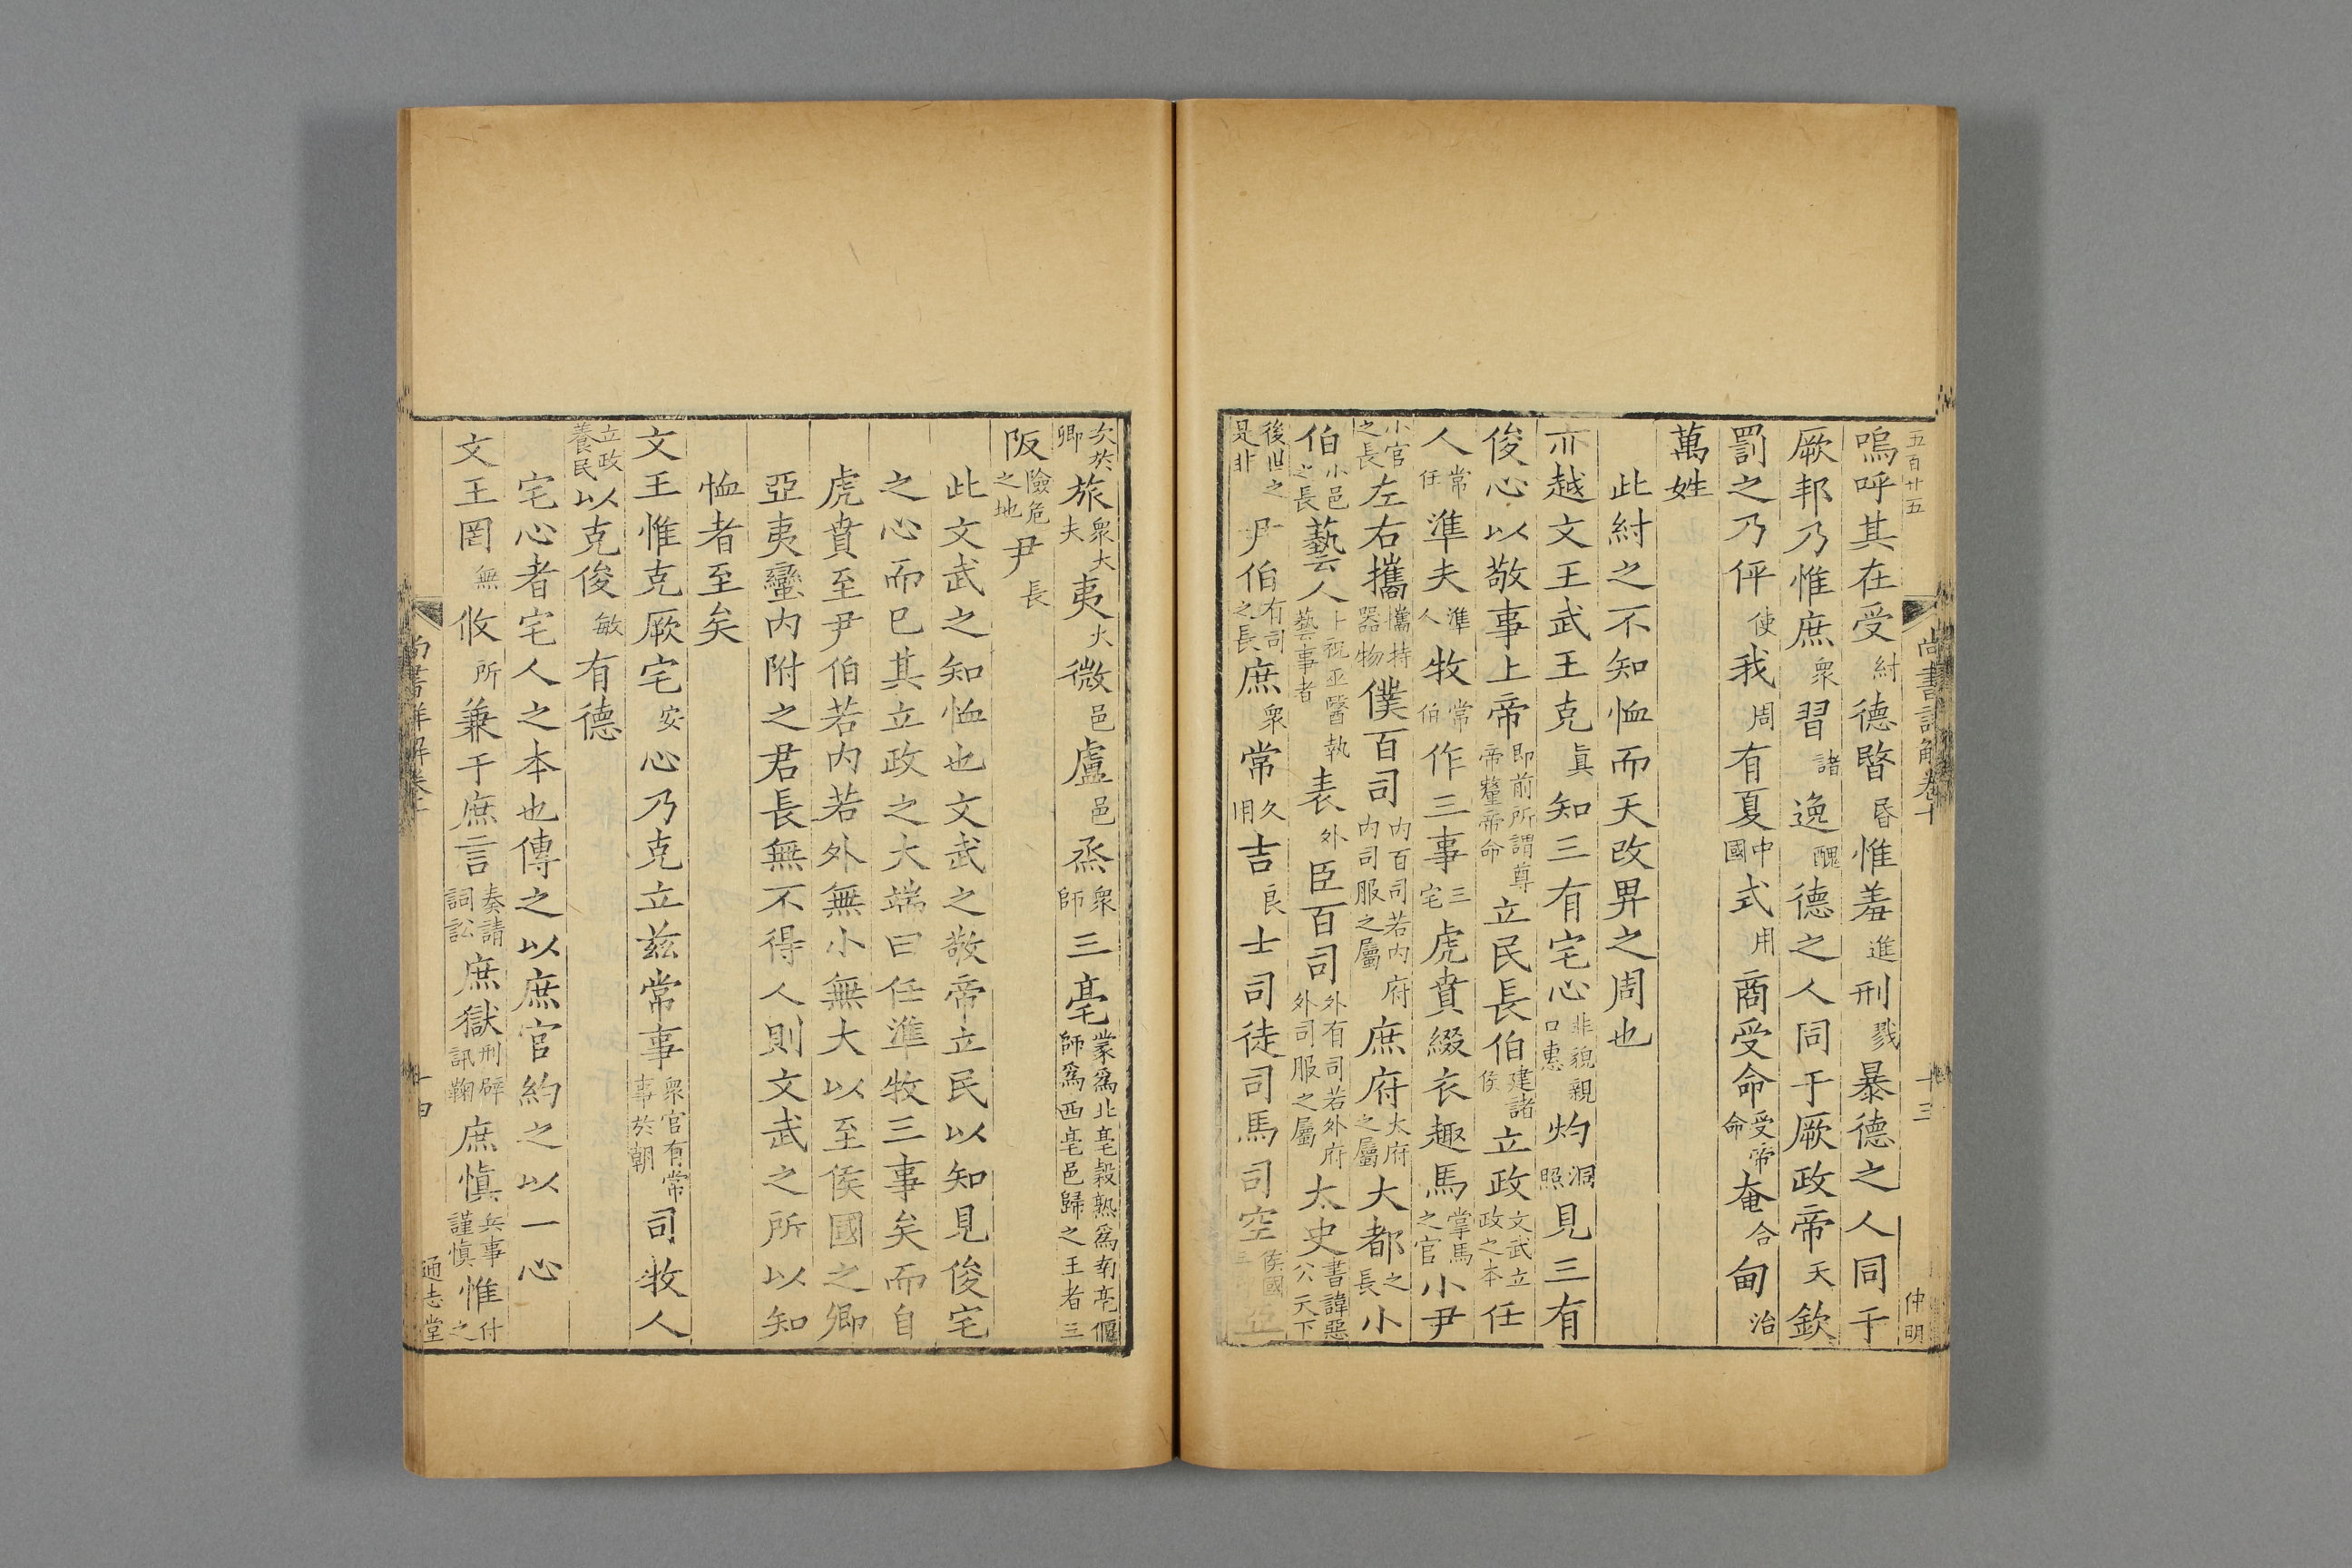 五百廿五
尚書詳解卷十
十三
仲明
嗚呼其在受紂德暋昬惟羞進刑戮暴德之人同于
厥邦乃惟庶衆習諸逸醜德之人同于厥政帝天欽
罰之乃伻使我周有夏中國式用商受命受帝命奄合甸治
萬姓
此紂之不知恤而天改畀之周也
亦越文王武王克眞知三有宅心非貌親口惠灼洞照見三有
俊心以敬事上帝即前所謂尊帝釐帝命立民長伯建諸侯立政文武立政之本任
人常任準夫準人牧常伯作三事三宅虎賁綴衣趣馬掌馬之官小尹
小官之長左右攜攜持器物僕百司内百司若内府内司服之屬庶府太府之屬大都之長小
伯小邑之長藝人卜祝巫醫執藝事者表外臣百司外有司若外府外司服之屬太史書諱惡公天下
後世之是非尹伯有司之長庶衆常久用吉良士司徒司馬司空侯國三亞
次於卿旅衆大夫夷火微邑盧邑烝衆師三亳蒙爲北亳穀熟爲南亳偃師爲西亳邑歸之王者三
阪險危之地尹長
此文武之知恤也文武之敬帝立民以知見俊宅
之心而已其立政之大端曰任準牧三事矣而自
虎賁至尹伯若内若外無小無大以至侯國之卿
亞夷蠻内附之君長無不得人則文武之所以知
恤者至矣
文王惟克厥宅安心乃克立茲常事衆官有常事於朝司牧人
立政養民以克俊敏有德
宅心者宅人之本也傳之以庶官約之以一心
文王罔無攸所兼于庶言奏請詞訟庶獄刑辟訊鞫庶慎兵事謹慎惟付之
尚書詳解卷十
十四
通志堂